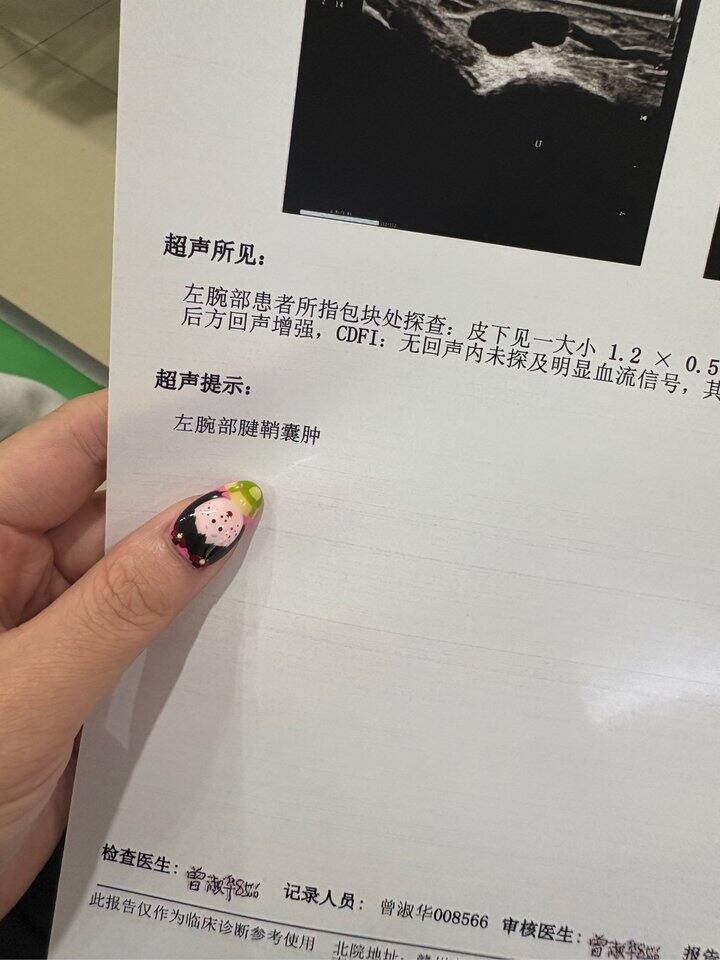 LT
超声所见：
左腕部患者所指包块处探查：皮下见一大小 1.2 × 0.5
后方回声增强，CDFI：无回声内未探及明显血流信号，其
超声提示：
左腕部腱鞘囊肿
检查医生： 记录人员： 曾淑华008566 审核医生： 报告
此报告仅作为临床诊断参考使用 北院地址：